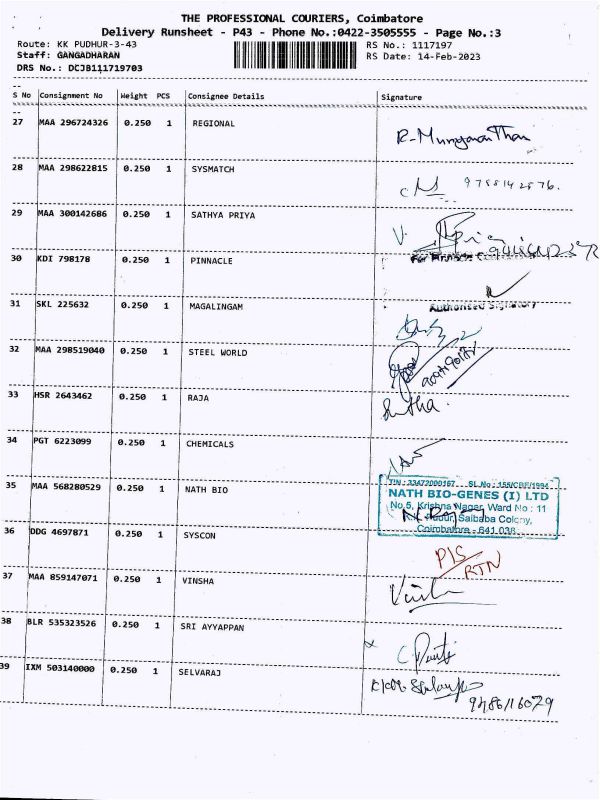 THE PROFESSIONAL COURIERS, Coimbatore
Delivery Runsheet - P43 - Phone No.:0422-3505555 - Page No.:3
Route: KK PUDHUR-3-43 RS No.: 1117197
Staff: GANGADHARAN RS Date: 14-Feb-2023
DRS No.: DCJB111719703
S No Consignment No Weight PCS Consignee Details Signature
27 MAA 296724326 0.250 1 REGIONAL
28 MAA 298622815 0.250 1 SYSMATCH
29 MAA 300142686 0.250 1 SATHYA PRIYA
30 KDI 798178 0.250 1 PINNACLE
Authorised Signatory
31 SKL 225632 0.250 1 MAGALINGAM
32 MAA 298519040 0.250 1 STEEL WORLD
33 HSR 2643462 0.250 1 RAJA
34 PGT 6223099 0.250 1 CHEMICALS
35 MAA 568280529 0.250 1 NATH BIO
NATH BIO-GENES (I) LTD
No.5, Krishna Nagar, Ward No : 11
Saibaba Colony,
Coimbatore - 641 038
36 DDG 4697871 0.250 1 SYSCON
RTN
37 MAA 859147071 0.250 1 VINSHA
38 BLR 535323526 0.250 1 SRI AYYAPPAN
39 IXM 503140000 0.250 1 SELVARAJ
9486116029